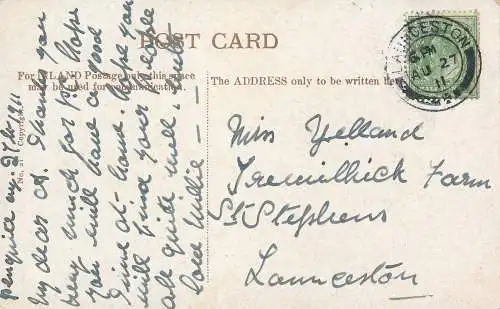 POST CARD
For INLAND Postage only this space
may be used for communication.
The ADDRESS only to be written here
No. 21 Copyright
LAUNCESTON
AU 27
11
27
My dear
Thank you
very much for P.C. hope
you will have a good
time at home. Hope you
will find your people
all quite well.
love Willie
Miss Yelland
Tremillhick Farm
St Stephens
Launceston